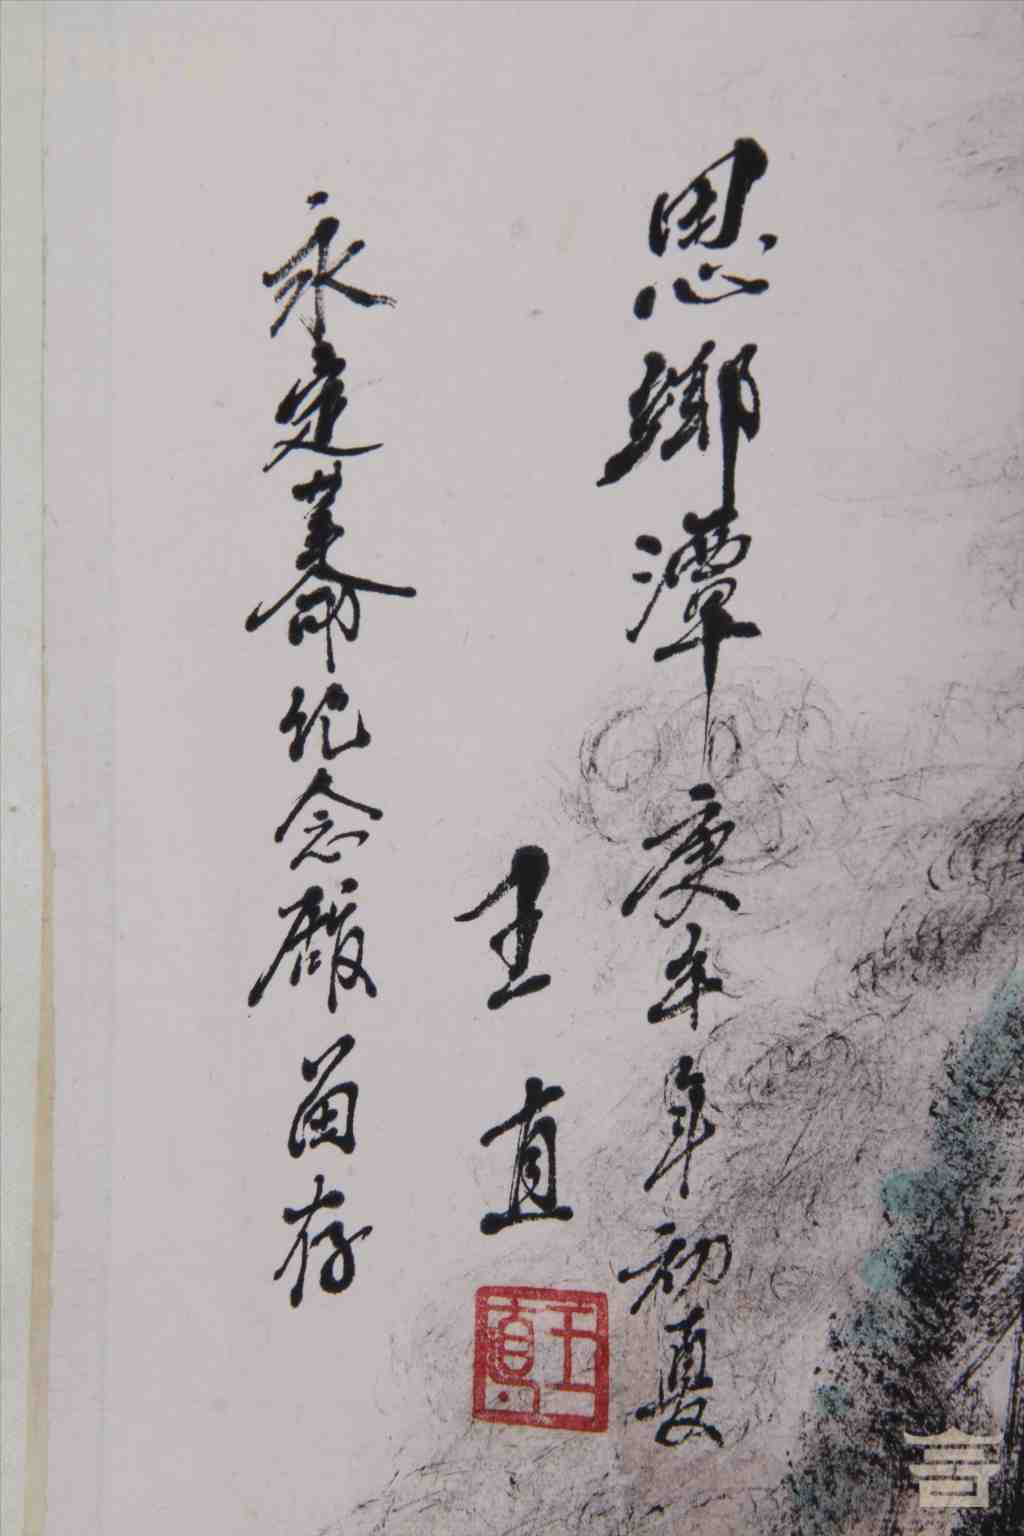 思鄉潭 庚午年初夏
王直
王直
永定革命纪念馆留存